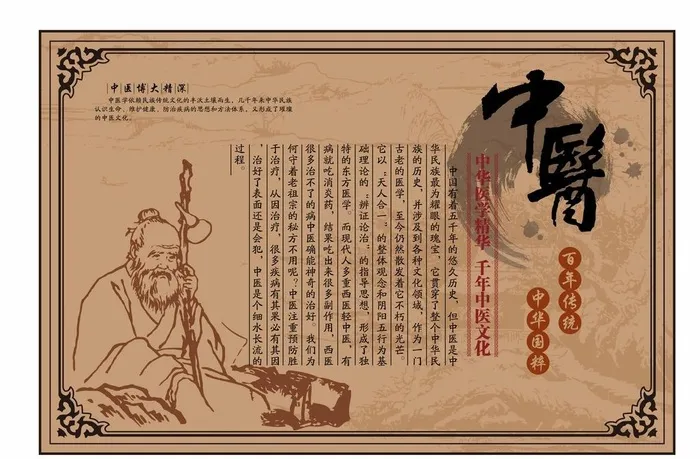 中醫
百年传统
中华国粹
中华医学精华 千年中医文化
中国有着五千年的悠久历史，但中医是中
华民族最为耀眼的瑰宝，它贯穿了整个中华民
族的历史，并涉及到各种文化领域，作为一门
古老的医学，至今仍然散发着它不朽的光芒。
它以“天人合一”的整体观念和阴阳五行为基
础理论的“辨证论治”的指导思想，形成了独
特的东方医学。而现代人多重西医轻中医，有
病就吃消炎药，结果吃出来很多副作用，西医
很多治不了的病中医确能神奇的治好。我们为
何守着老祖宗的秘方不用呢？中医注重预防胜
于治疗，从因治疗，很多疾病有其果必有其因
，治好了表面还是会犯，中医是个细水长流的
过程。
中医博大精深
中医学依赖民族传统文化的丰沃土壤而生，几千年来中华民族
认识生命、维护健康、防治疾病的思想和方法体系，又形成了璀璨
的中医文化。